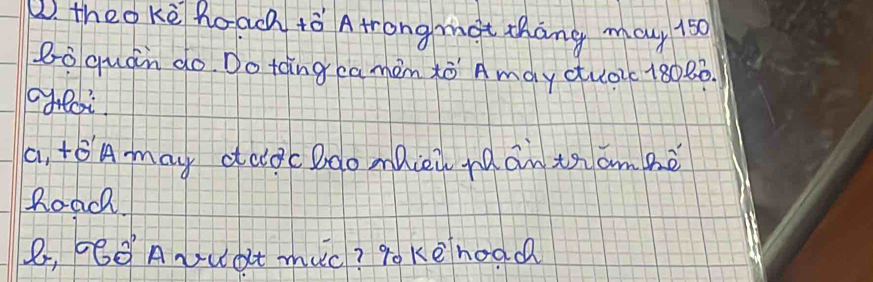 ②. theo kế hoạch tổ A trong một tháng may 150
bộ quần áo. Do tăng ca nên tổ A may được 180 bộ.
Hỏi.
a, tổ A may được bao nhiêu phần trăm kế
hoạch.
b, tổ A vượt mức ? % kế hoạch